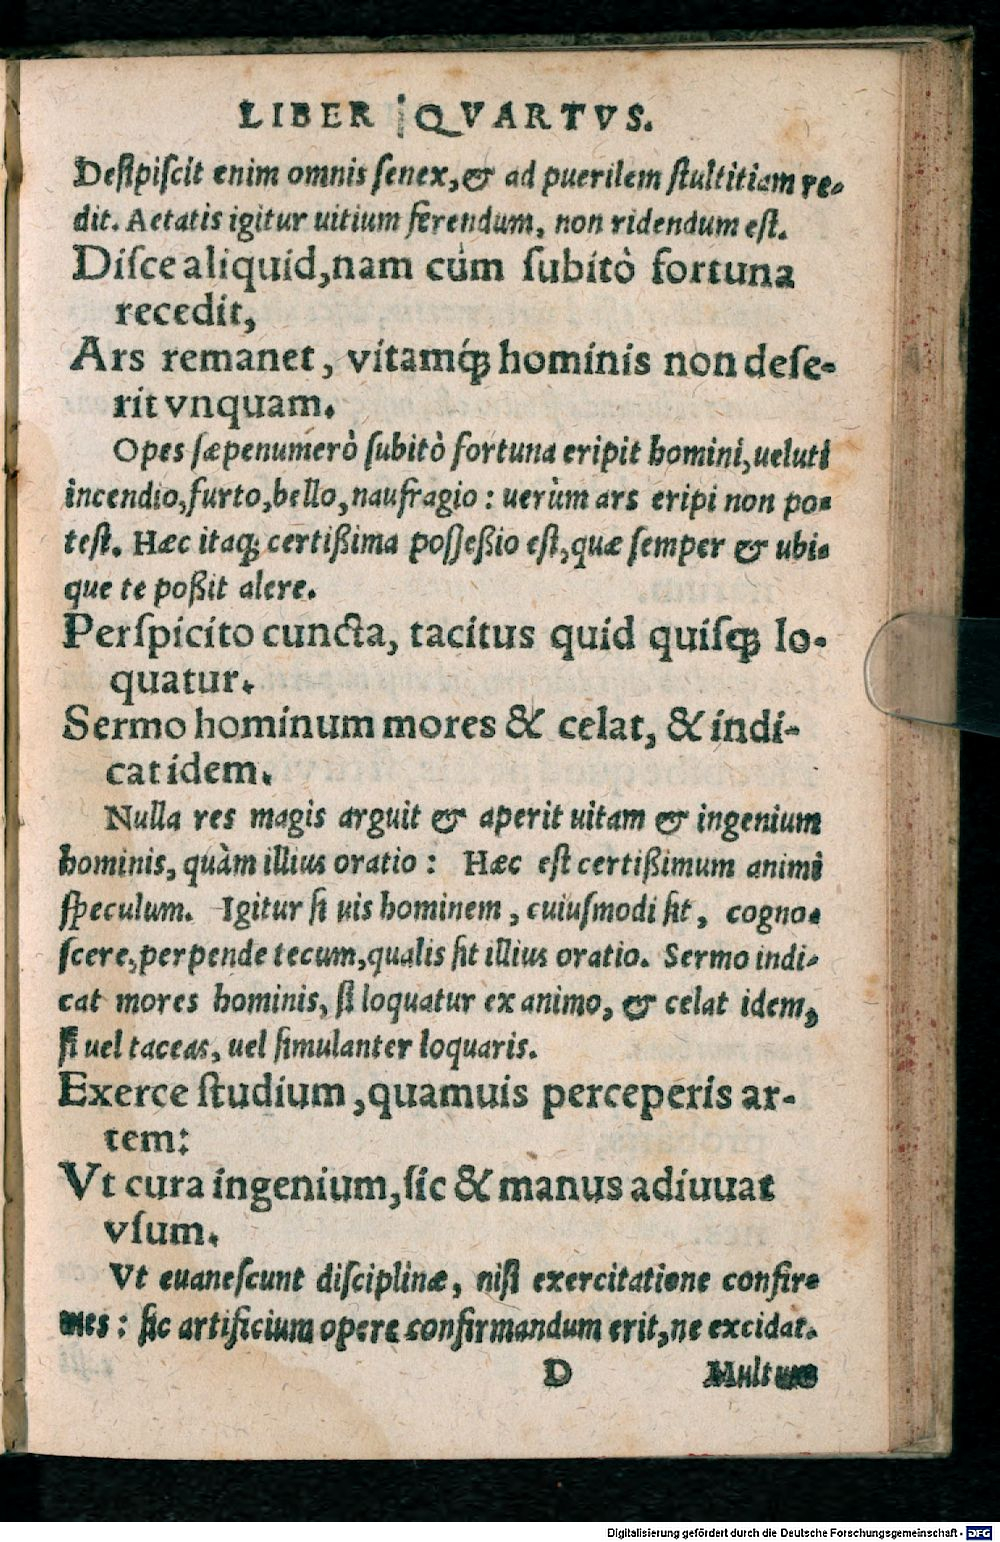 LIBER QVARTVS.
Desipiſcit enim omnis ſenex, & ad puerilem ſtultitiam re-
dit. Aetatis igitur uitium ferendum, non ridendum eſt.
Diſce aliquid, nam cùm ſubitò fortuna
recedit,
Ars remanet, vitamq́; hominis non deſe-
rit vnquam.
Opes ſæpenumerò ſubitò fortuna eripit homini, ueluti
incendio, furto, bello, naufragio: uerùm ars eripi non po-
teſt. Hæc itaq; certißima poſſeßio eſt, quæ ſemper & ubi-
que te poßit alere.
Perſpicito cuncta, tacitus quid quiſq; lo-
quatur.
Sermo hominum mores & celat, & indi-
cat idem.
Nulla res magis arguit & aperit uitam & ingenium
hominis, quàm illius oratio: Hæc eſt certißimum animi
ſpeculum. Igitur ſi uis hominem, cuiuſmodi ſit, cogno-
ſcere, perpende tecum, qualis ſit illius oratio. Sermo indi-
cat mores hominis, ſi loquatur ex animo, & celat idem,
ſi uel taceas, uel ſimulanter loquaris.
Exerce ſtudium, quamuis perceperis ar-
tem:
Vt cura ingenium, ſic & manus adiuuat
vſum.
Vt euaneſcunt diſciplinæ, niſi exercitatione confir-
mes: ſic artificium opere confirmandum erit, ne excidat.
D Multum
Digitalisierung gefördert durch die Deutsche Forschungsgemeinschaft - DFG